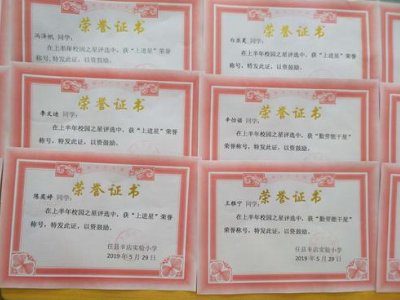 荣誉证书
同学:
在上半年校园之星评选中,获“上进星”荣誉
称号,特发此证,以资鼓励。
荣誉证书
同学:
在上半年校园之星评选中,获“上进星”荣誉
称号,特发此证,以资鼓励。
荣誉证书
李文迪 同学:
在上半年校园之星评选中,获“上进星”荣誉
称号,特发此证,以资鼓励。
荣誉证书
同学:
在上半年校园之星评选中,获“勤劳能干星”
荣誉称号,特发此证,以资鼓励。
荣誉证书
陈奕婷 同学:
在上半年校园之星评选中,获“上进星”荣誉
称号,特发此证,以资鼓励。
任县辛店实验小学
2019 年 5 月 29 日
荣誉证书
王雅宁 同学:
在上半年校园之星评选中,获“勤劳能干星”
荣誉称号,特发此证,以资鼓励。
任县辛店实验小学
2019 年 5 月 29 日